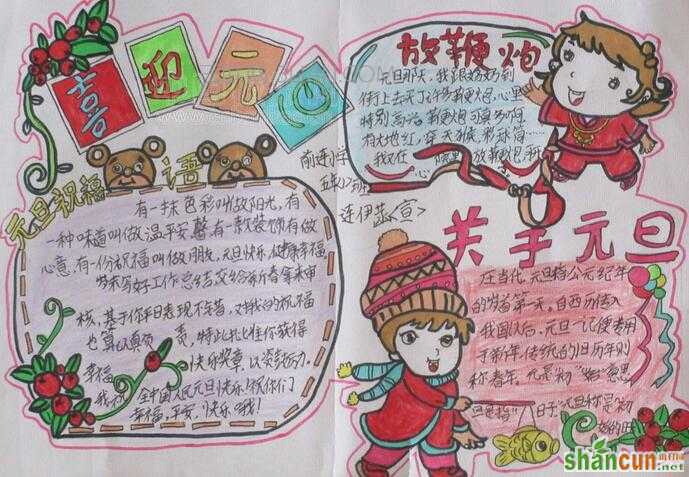 喜迎元旦
元旦祝福语
有一抹色彩叫做阳光,有
一种味道叫做温平安馨有一款装饰有做
心意,有一份祝福叫做朋友,元旦快乐,健康幸福,
写好工作总结,交给新春拿来审
核,基于你平日表现不错,对我的祝福
也算认真负责,特此批准你获得
幸福快乐奖章,以资鼓励,
我祝全中国人民元旦快乐,祝你们
幸福,平安,快乐哦!
放鞭炮
元旦那天,我跟奶奶到
街上去买了许多鞭炮,心里
特别高
有大地红,穿天猴,彩珠筒…
我在放鞭炮,
前连小学
连伊蕊宣
关于元旦
在当代,元旦指公元纪年
的岁首第一天。自西历传入
我国以后,元旦一记便专用
于新年,传统的旧历年则
称春年。元是初"始"意思
旦是指"日子",元旦称是初
始的日
shancun
.net